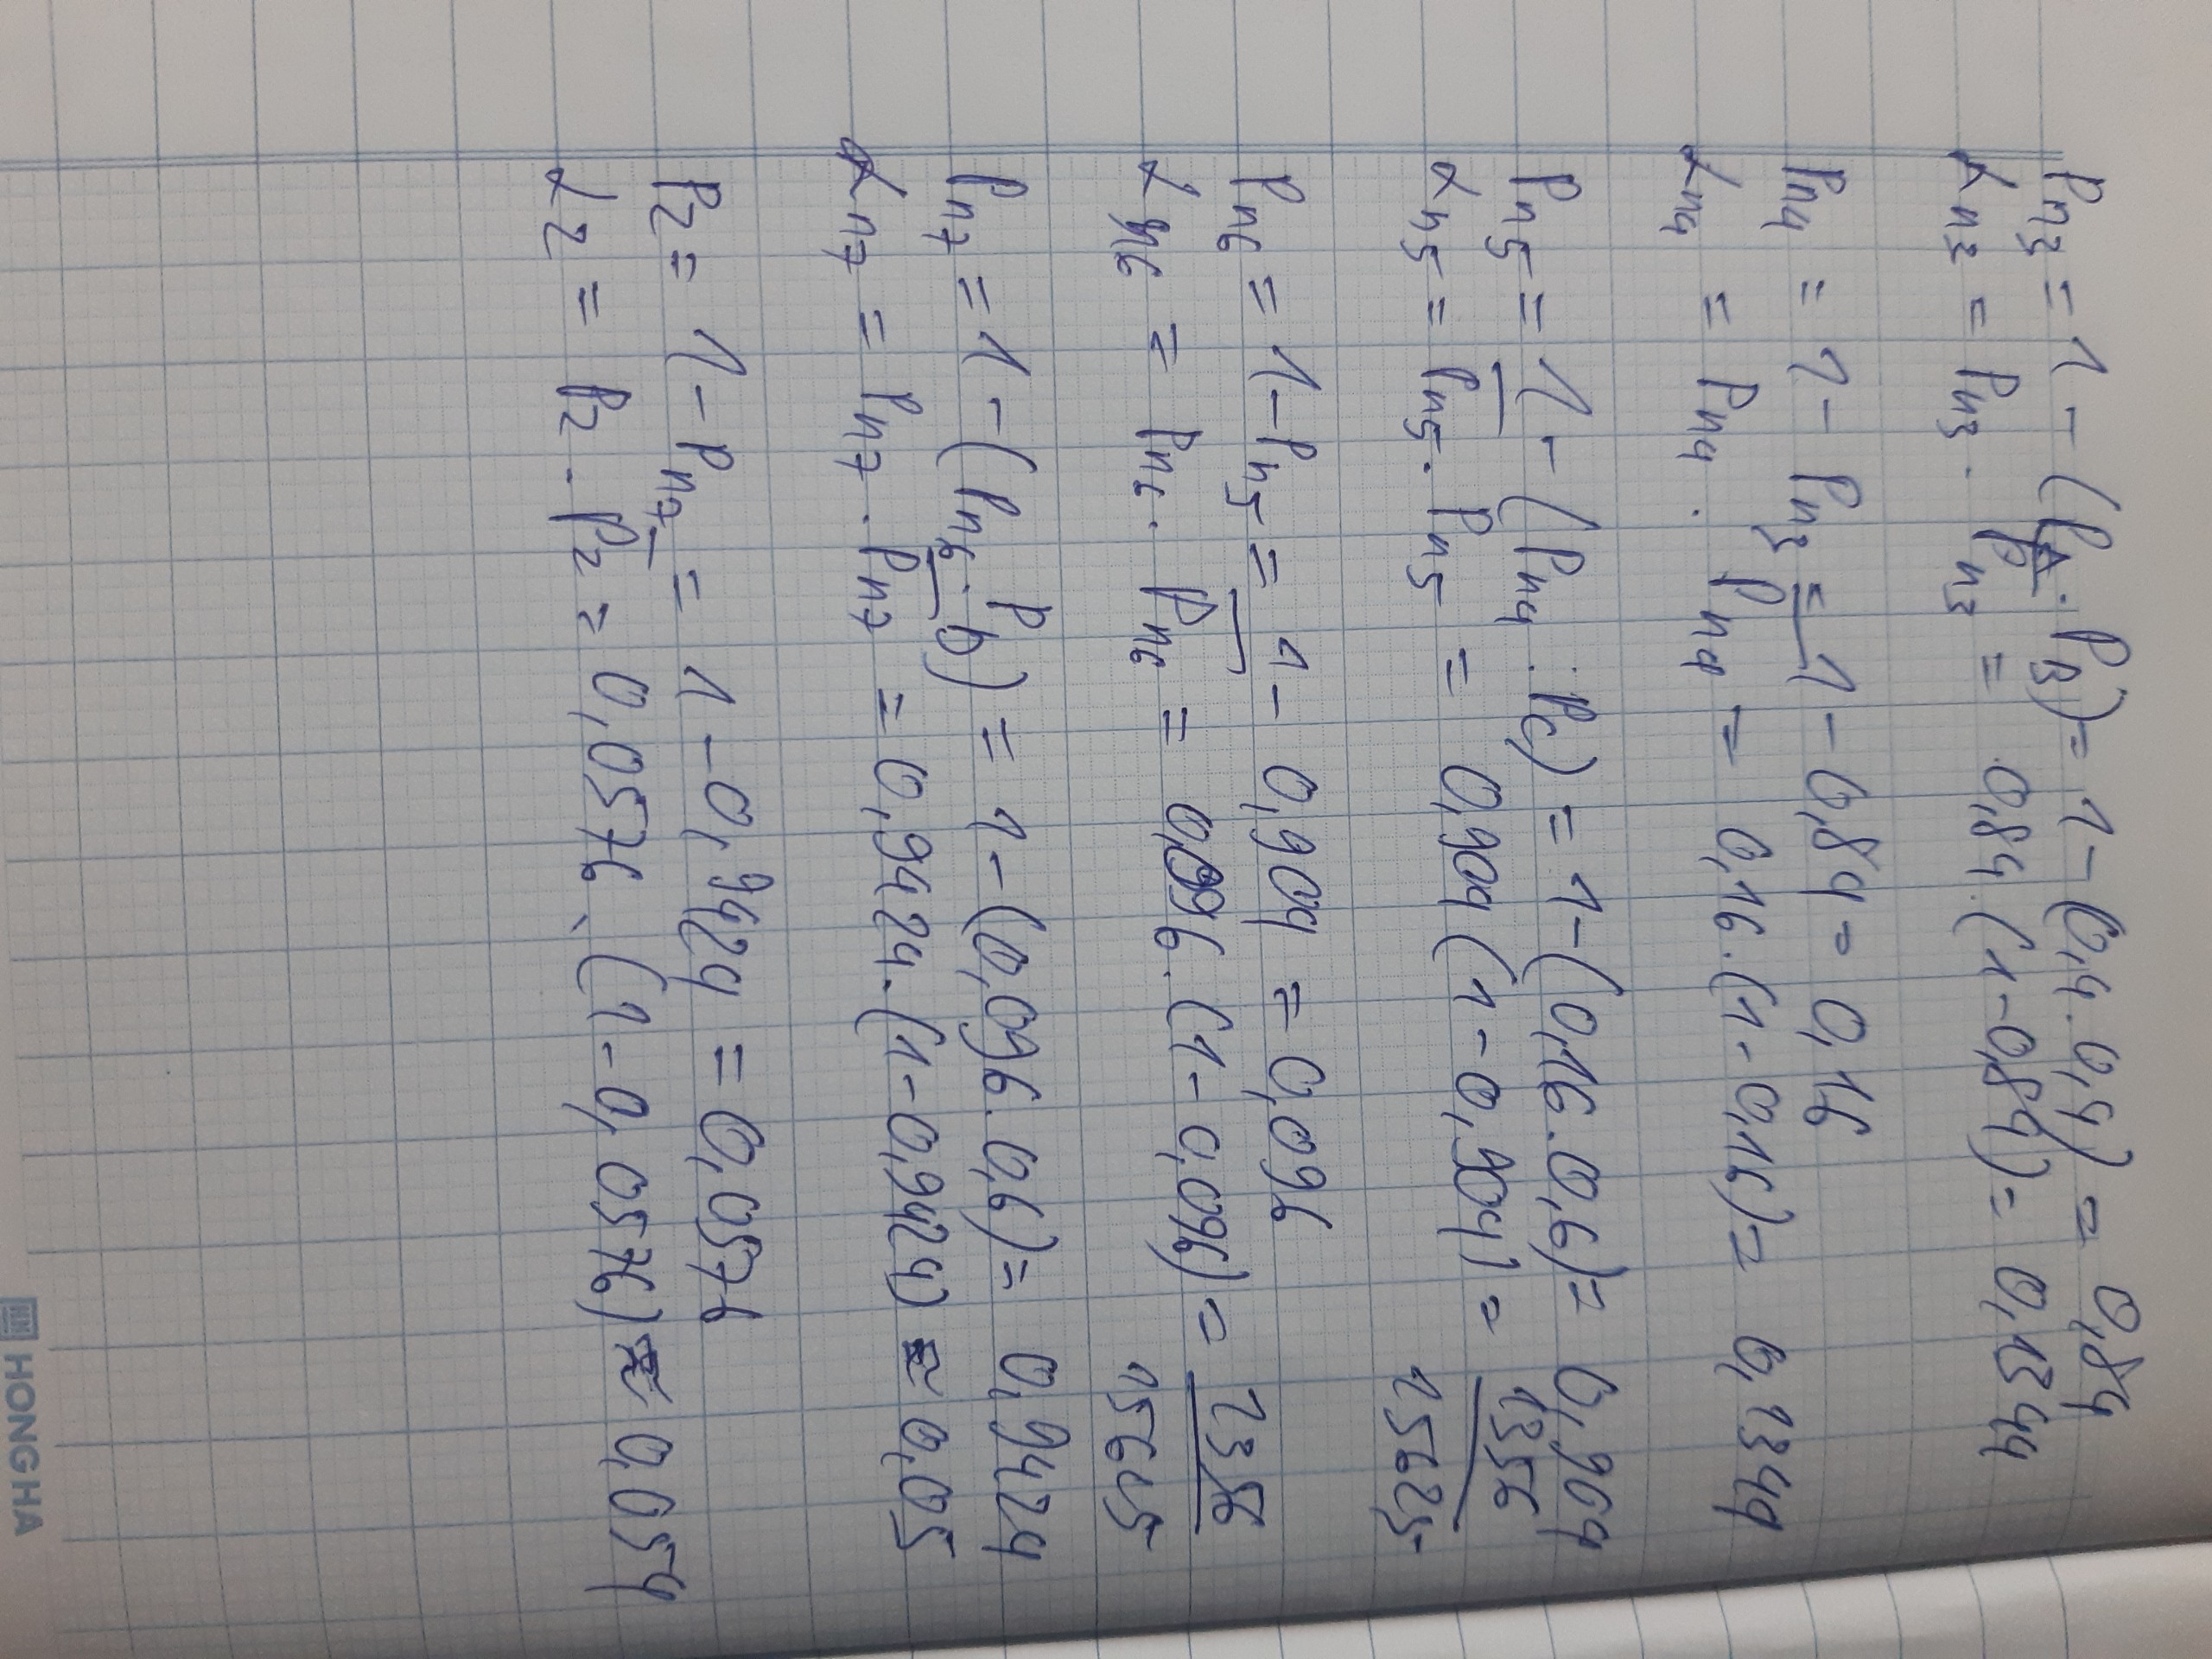 Pn3 = 1 - (PA . PB) = 1 - (0,4 . 0,4) = 0,84
αn3 = Pn3 . P̅n3 = 0,84 . (1 - 0,84) = 0,1344
Pn4 = 1 - Pn3 = 1 - 0,84 = 0,16
αn4 = Pn4 . P̅n4 = 0,16 . (1 - 0,16) = 0,1344
Pn5 = 1 - (Pn4 . PC) = 1 - (0,16 . 0,6) = 0,904
αn5 = P̅n5 . Pn5 = 0,904 (1 - 0,904) = 1356/15625
Pn6 = 1 - Pn5 = 1 - 0,904 = 0,096
αn6 = Pn6 . P̅n6 = 0,096 . (1 - 0,096) = 1356/15625
Pn7 = 1 - (Pn6 . PD) = 1 - (0,096 . 0,6) = 0,9424
αn7 = Pn7 . P̅n7 = 0,9424 . (1 - 0,9424) ≈ 0,05
PZ = 1 - Pn7 = 1 - 0,9424 = 0,0576
αZ = PZ . P̅Z = 0,0576 . (1 - 0,0576) ≈ 0,054
HONG HA